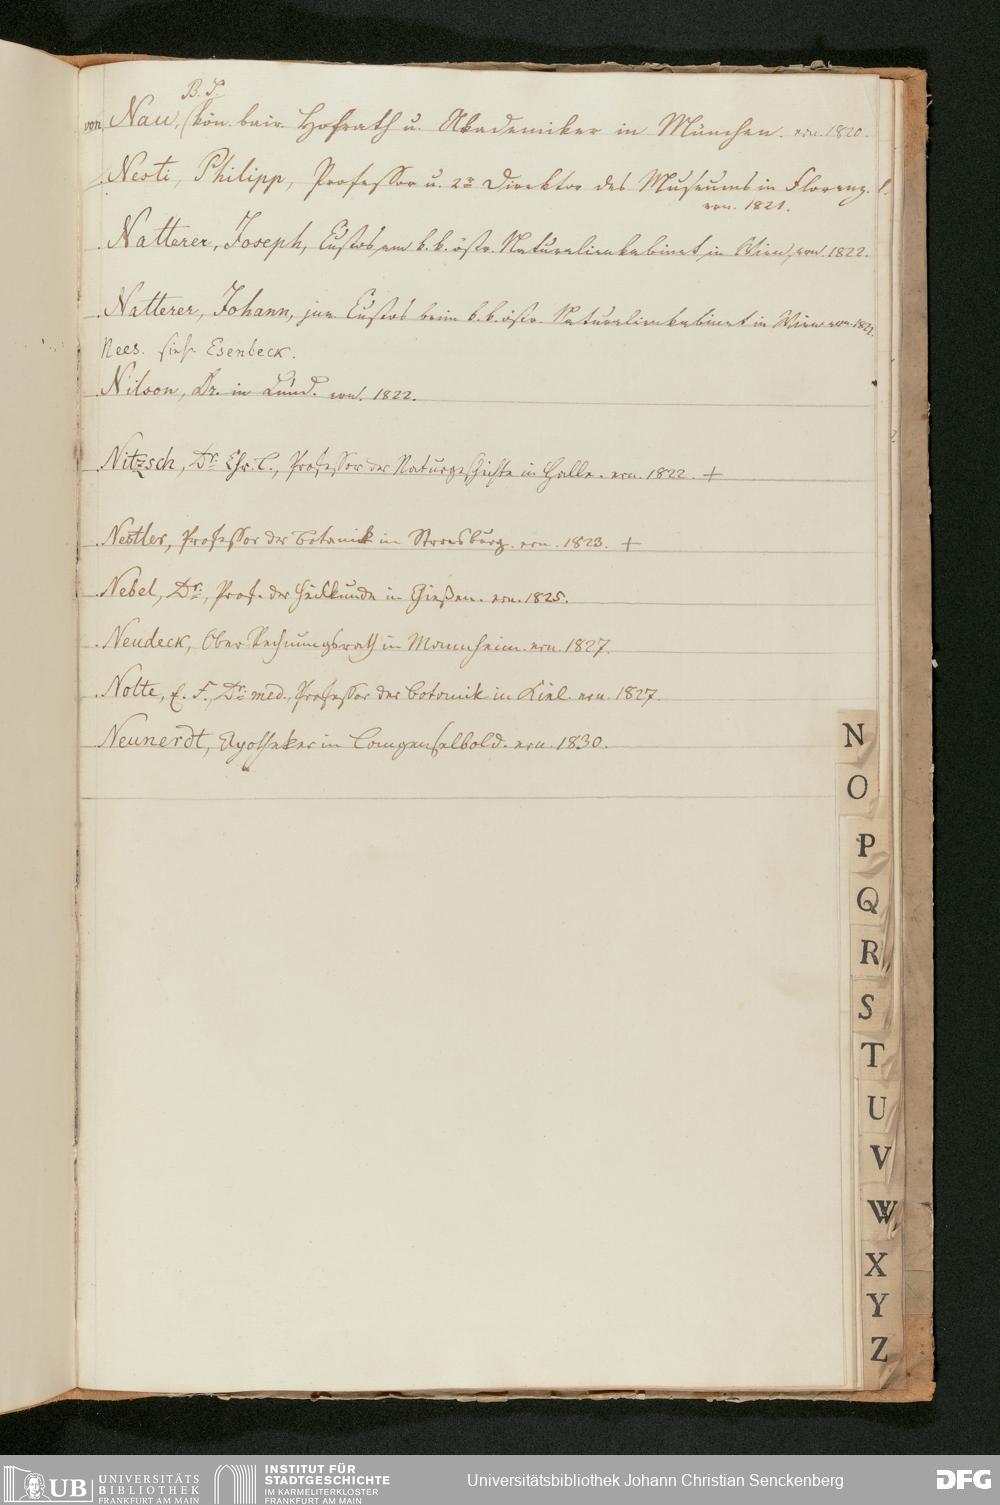 B. S.
von Nau, kön. bair. Hofrath u. Akademiker in München. ern. 1820.
Nesti, Philipp, Professor u. 2r Direktor des Museums in Florenz.
ern. 1821.
Natterer, Joseph, Custos am k. k. östr. Naturalienkabinet in Wien, ern. 1822.
Natterer, Johann, jun. Custos beim k. k. östr. Naturalienkabinet in Wien ern. 1822.
Nees. sieh Esenbeck.
Nilson, Dr. in Lund. ern. 1822.
Nitzsch, Dr. Chr. L., Professor der Naturgeschichte in Halle. ern. 1822. +
Nestler, Professor der Botanik in Strasburg. ern. 1823. +
Nebel, Dr., Prof. der Heilkunde in Gießen. ern. 1825.
Neudeck, Ober Rechnungsrath in Mannheim. ern. 1827.
Nolte, E. F., Dr. med., Professor der Botanik in Kiel. ern. 1827.
Neunerdt, Apotheker in Langenselbold. ern. 1830.
N
O
P
Q
R
S
T
U
V
W
X
Y
Z
UB UNIVERSITÄTS
BIBLIOTHEK
FRANKFURT AM MAIN
INSTITUT FÜR
STADTGESCHICHTE
IM KARMELITERKLOSTER
FRANKFURT AM MAIN
Universitätsbibliothek Johann Christian Senckenberg
DFG